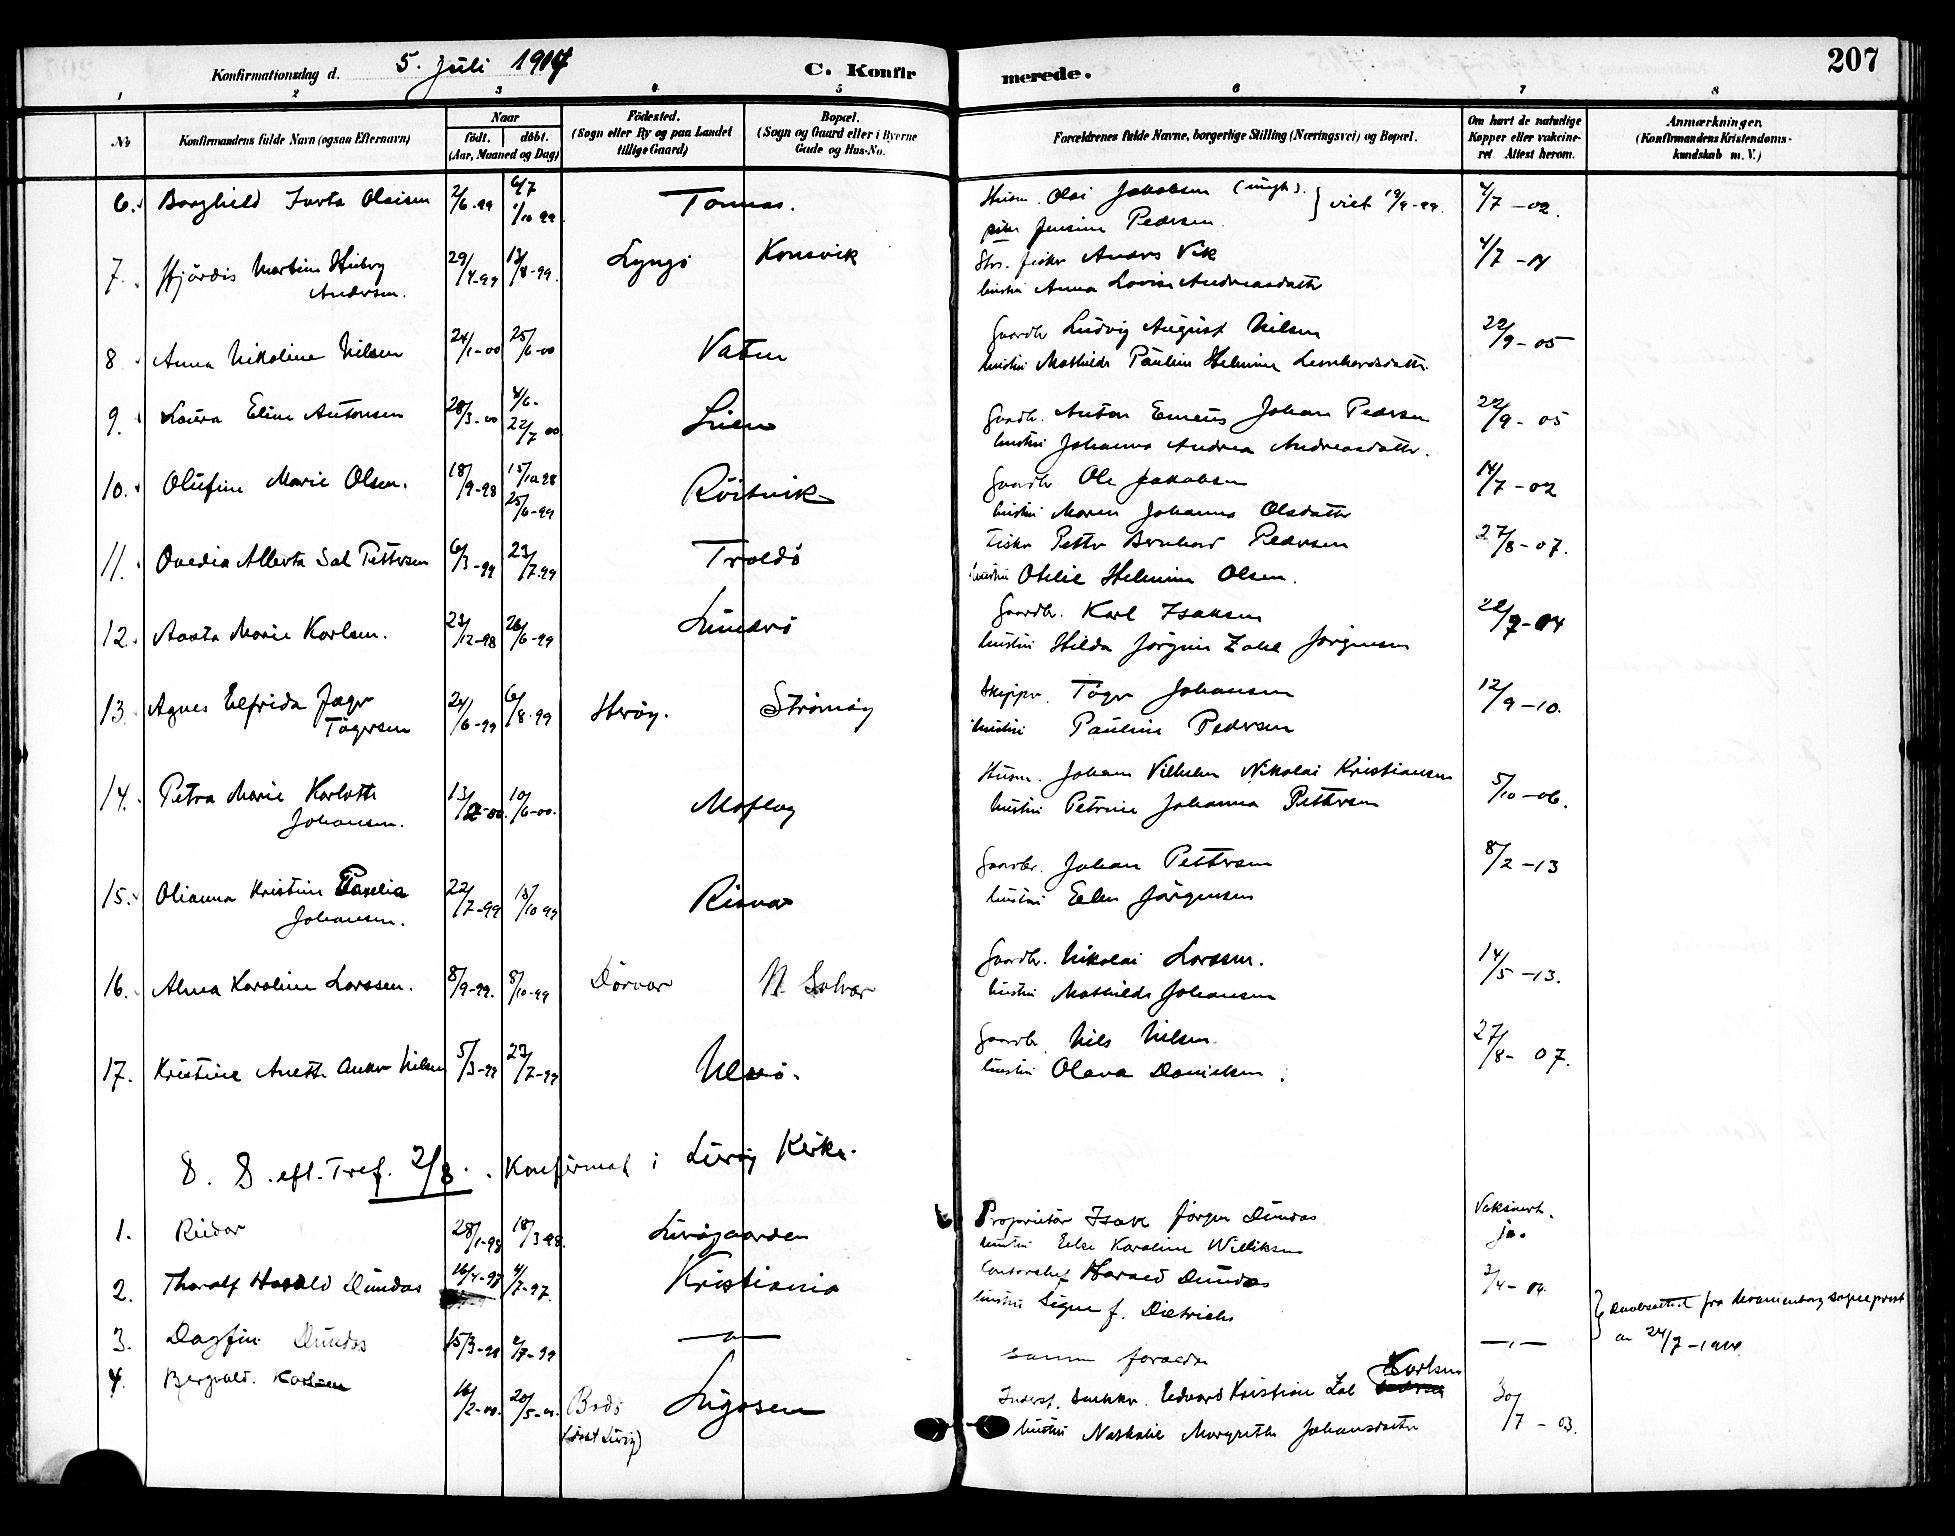 207
Konfirmationsdag d. 5. Juli 1914 C. Konfirmerede.
1 2 3 4 5 6 7 8
№
Konfirmandens fulde Navn (ogsaa Efternavn)
Naar
født. døbt.
(Aar, Maaned og Dag)
Fødested.
(Sogn eller By og paa Landet
tillige Gaard)
Bopæl.
(Sogn og Gaard eller i Byerne
Gade og Hus-No.
Forældrenes fulde Navne, borgerlige Stilling (Næringsvei) og Bopæl.
Om havt de naturlige
Kopper eller vakcine-
ret Attest herom.
Anmærkninger.
(Konfirmandens Kristendoms-
kundskab m. V.)
6. Borghild Olaisen 2/6-99 6/7 1/10 99 Tonnes. Husm. Olai Jakobsen (ungk). viet 19/9-99. 4/7-02.
pike Jensine Pedersen.
7. Hjördis Martine Andersen. 29/4-99 13/8-99. Lyngö Konsvik Anders Vik 4/7-14
hustru Anna Lovise Andreasdatter
8 Anna Nikoline Nilsen 24/1-00 25/6-00 Vatne Gaardbr Ludvig August Nilsen 22/9-05
hustru Mathilde Pauline Helmine Leonhardsdattr.
9. Laura Eline Antonsen 28/3-00 4/6- 22/7 00 Lien Gaardb. Anton Johan Pedersen 22/9-05
hustru Johanna Andrea Andreasdattr.
10. Olufine Marie Olsen. 18/9-98 15/10 98 25/6-99 Röitvik Gaardbr Ole Jakobsen 14/7-02
hustru Maren Johanna Olsdatter
11. Ovedia Alberta Sal Pettersen 6/3-99 23/7-99 Troldö Fisker Petter Bernhard Pedersen 27/8-07.
hustru Otelie Helmine Olsen.
12. Aasta Marie Karlsen. 23/12-98 26/6-99 Gaardbr. Karl Isaksen 22/9-04
hustru Hilda Jörgine Zahl Jörgensen
13. Agnes Elfrida Tögersen 24/6-99 6/8-99 Heröy. Strömöy Skipper. Töger Johansen 12/9-10.
hustru Pauline Pedersen
14. Petra Marie Karlotte Johansen. 13/2-00. 10/6-00. Moflag Husm. Johan Vilhelm Nikolai Kristiansen 5/10-06.
hustru Petrine Johanna Pettersen
15. Olianna Kristine Johansen. 22/7-99 15/10 99 Risvær Gaardbr. Johan Pettersen 8/2-13
hustru Ellen Jörgensen
16. Alma Karoline Larssen. 8/9-99. 8/10-99 Dörvær N. Solvær Gaardbr. Nikolai Larssen. 14/5-13.
hustru Mathilde Johansen
17. Kristine Anette Nilsen 5/3-99 23/7-99 Gaardbr. Nils Nilsen. 27/8-07.
hustru Olava Danielsen.
8. S. eft. Tref. 2/8. Konfirmat i Luröy Kirke.
1. Reidar 28/1-98 18/3 98. Lurögaarden Proprietær Isak Jörgen Dundas Vaksinert. ja.
hustru Karoline Williksen
2. Thoralf Harald Dundas 16/4-97 4/7-97. Kristiania Contorchef Harald Dundas
hustru Signe f. Dietrichs
Daabsattest fra Uranienborg sogneprest
av 24/7-1914.
3. Dagfin Dundas 15/3-99 —"— samme forældre —"—
4. Bergvald. Karlsen 16/2-00. 20/5-00. Bodö (döbt Luröy) Edvard Kristian Zahl Karlsen 30/7-03.
hustru Nathalie Margrethe Johansdatter